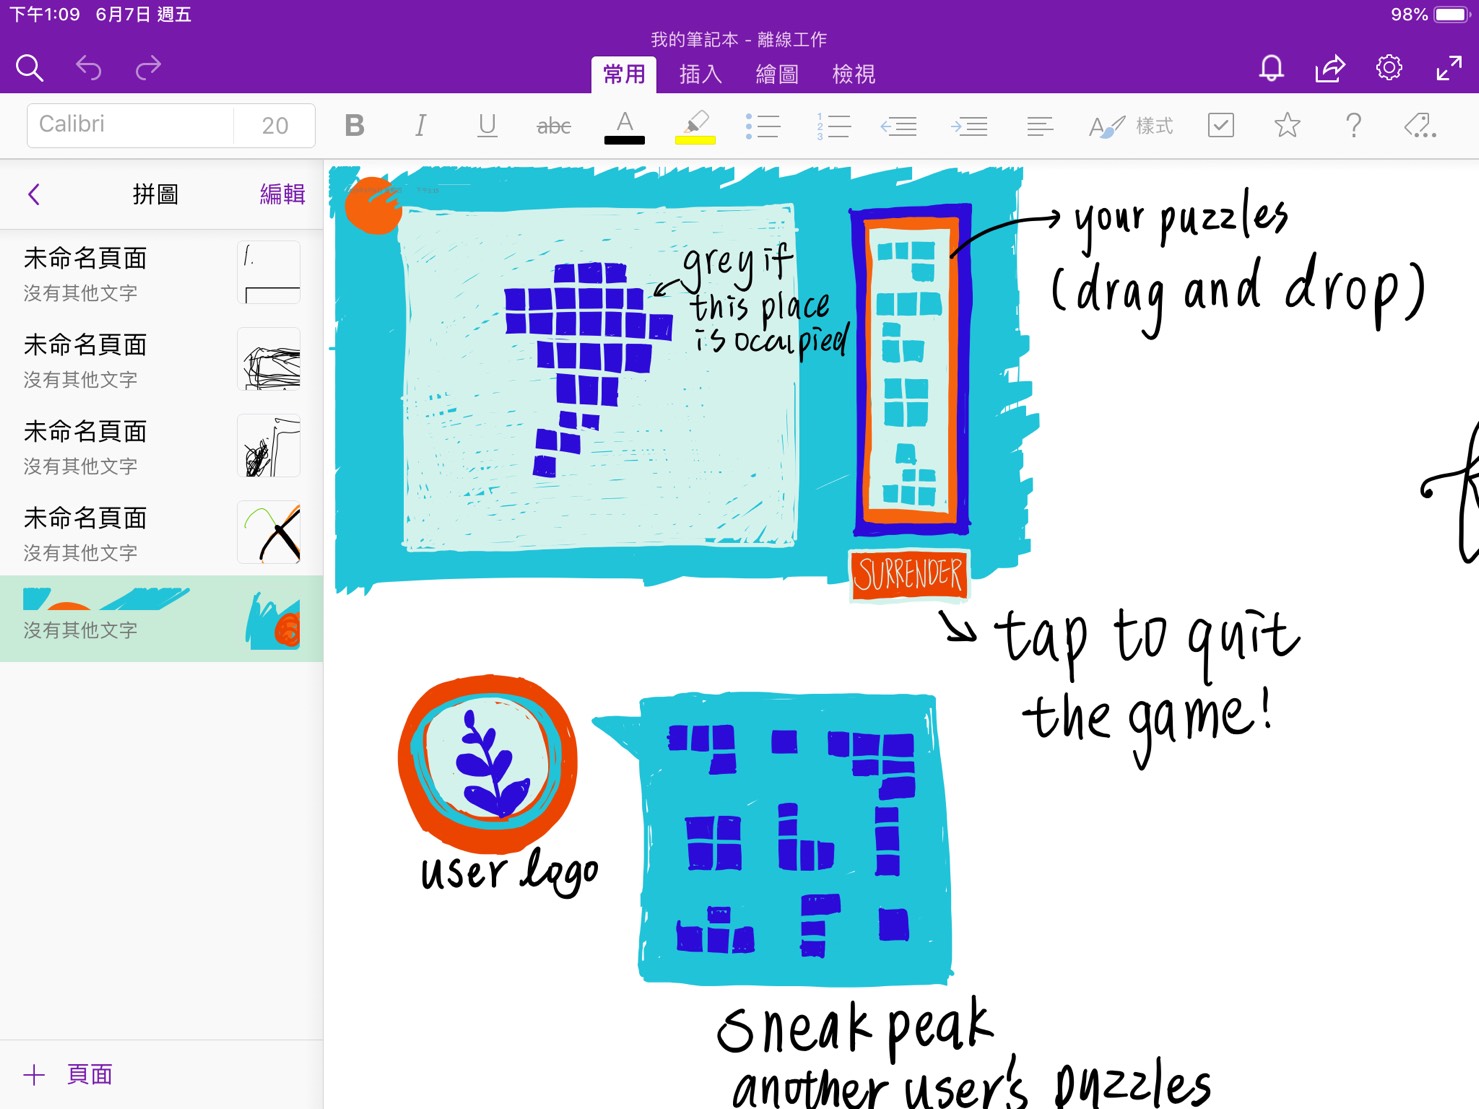 下午1:09 6月7日 週五
98%
我的筆記本 - 離線工作
常用 插入 繪圖 檢視
Calibri 20 B I U abc A 樣式
拼圖 編輯
未命名頁面
沒有其他文字
未命名頁面
沒有其他文字
未命名頁面
沒有其他文字
未命名頁面
沒有其他文字
沒有其他文字
頁面
grey if
this place
is occupied
your puzzles
(drag and drop)
SURRENDER
tap to quit
the game!
user logo
sneak peak
another user's puzzles